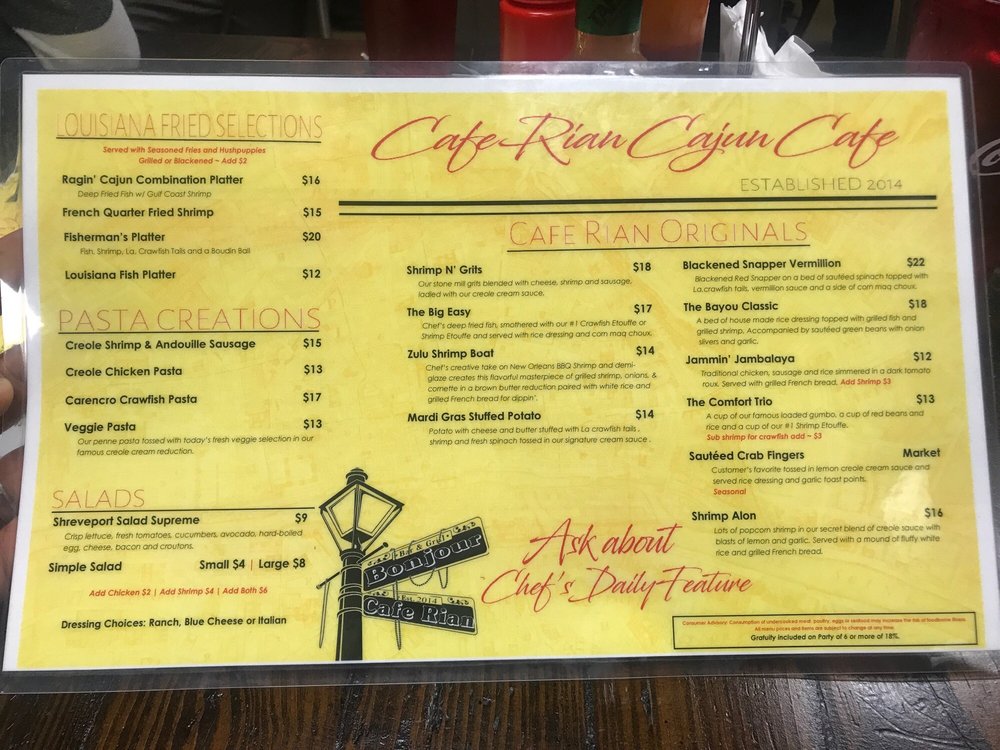 Cafe Rian Cajun Cafe
ESTABLISHED 2014
LOUISIANA FRIED SELECTIONS
Served with Seasoned Fries and Hushpuppies
Grilled or Blackened ~ Add $2
Ragin' Cajun Combination Platter $16
Deep Fried Fish w/ Gulf Coast Shrimp
French Quarter Fried Shrimp $15
Fisherman's Platter $20
Fish, Shrimp, La. Crawfish Tails and a Boudin Ball
Louisiana Fish Platter $12
PASTA CREATIONS
Creole Shrimp & Andouille Sausage $15
Creole Chicken Pasta $13
Carencro Crawfish Pasta $17
Veggie Pasta $13
Our penne pasta tossed with today's fresh veggie selection in our
famous creole cream reduction.
SALADS
Shreveport Salad Supreme $9
Crisp lettuce, fresh tomatoes, cucumbers, avocado, hard-boiled
egg, cheese, bacon and croutons.
Simple Salad Small $4 | Large $8
Add Chicken $2 | Add Shrimp $4 | Add Both $6
Dressing Choices: Ranch, Blue Cheese or Italian
CAFE RIAN ORIGINALS
Shrimp N' Grits $18
Our stone mill grits blended with cheese, shrimp and sausage,
ladled with our creole cream sauce.
The Big Easy $17
Chef's deep fried fish, smothered with our #1 Crawfish Etouffe or
Shrimp Etouffe and served with rice dressing and corn maq choux.
Zulu Shrimp Boat $14
Chef's creative take on New Orleans BBQ Shrimp and demi-
glaze creates this flavorful masterpiece of grilled shrimp, onions, &
cornette in a brown butter reduction paired with white rice and
grilled French bread for dippin'.
Mardi Gras Stuffed Potato $14
Potato with cheese and butter stuffed with La crawfish tails ,
shrimp and fresh spinach tossed in our signature cream sauce .
Blackened Snapper Vermillion $22
Blackened Red Snapper on a bed of sautéed spinach topped with
La.crawfish tails, vermillion sauce and a side of corn maq choux.
The Bayou Classic $18
A bed of house made rice dressing topped with grilled fish and
grilled shrimp. Accompanied by sautéed green beans with onion
slivers and garlic.
Jammin' Jambalaya $12
Traditional chicken, sausage and rice simmered in a dark tomato
roux. Served with grilled French bread. Add Shrimp $3
The Comfort Trio $13
A cup of our famous loaded gumbo, a cup of red beans and
rice and a cup of our #1 Shrimp Etouffe.
Sub shrimp for crawfish add ~ $3
Sautéed Crab Fingers Market
Customer's favorite tossed in lemon creole cream sauce and
served rice dressing and garlic toast points.
Seasonal
Shrimp Alon $16
Lots of popcorn shrimp in our secret blend of creole sauce with
blasts of lemon and garlic. Served with a mound of fluffy white
rice and grilled French bread.
Bar & Grill
Bonjour
Est. 2014
Cafe Rian
Ask about
Chef's Daily Feature
Consumer Advisory: Consumption of undercooked meat, poultry, eggs or seafood may increase the risk of foodborne illness.
All menu prices and items are subject to change at any time.
Gratuity included on Party of 6 or more of 18%.